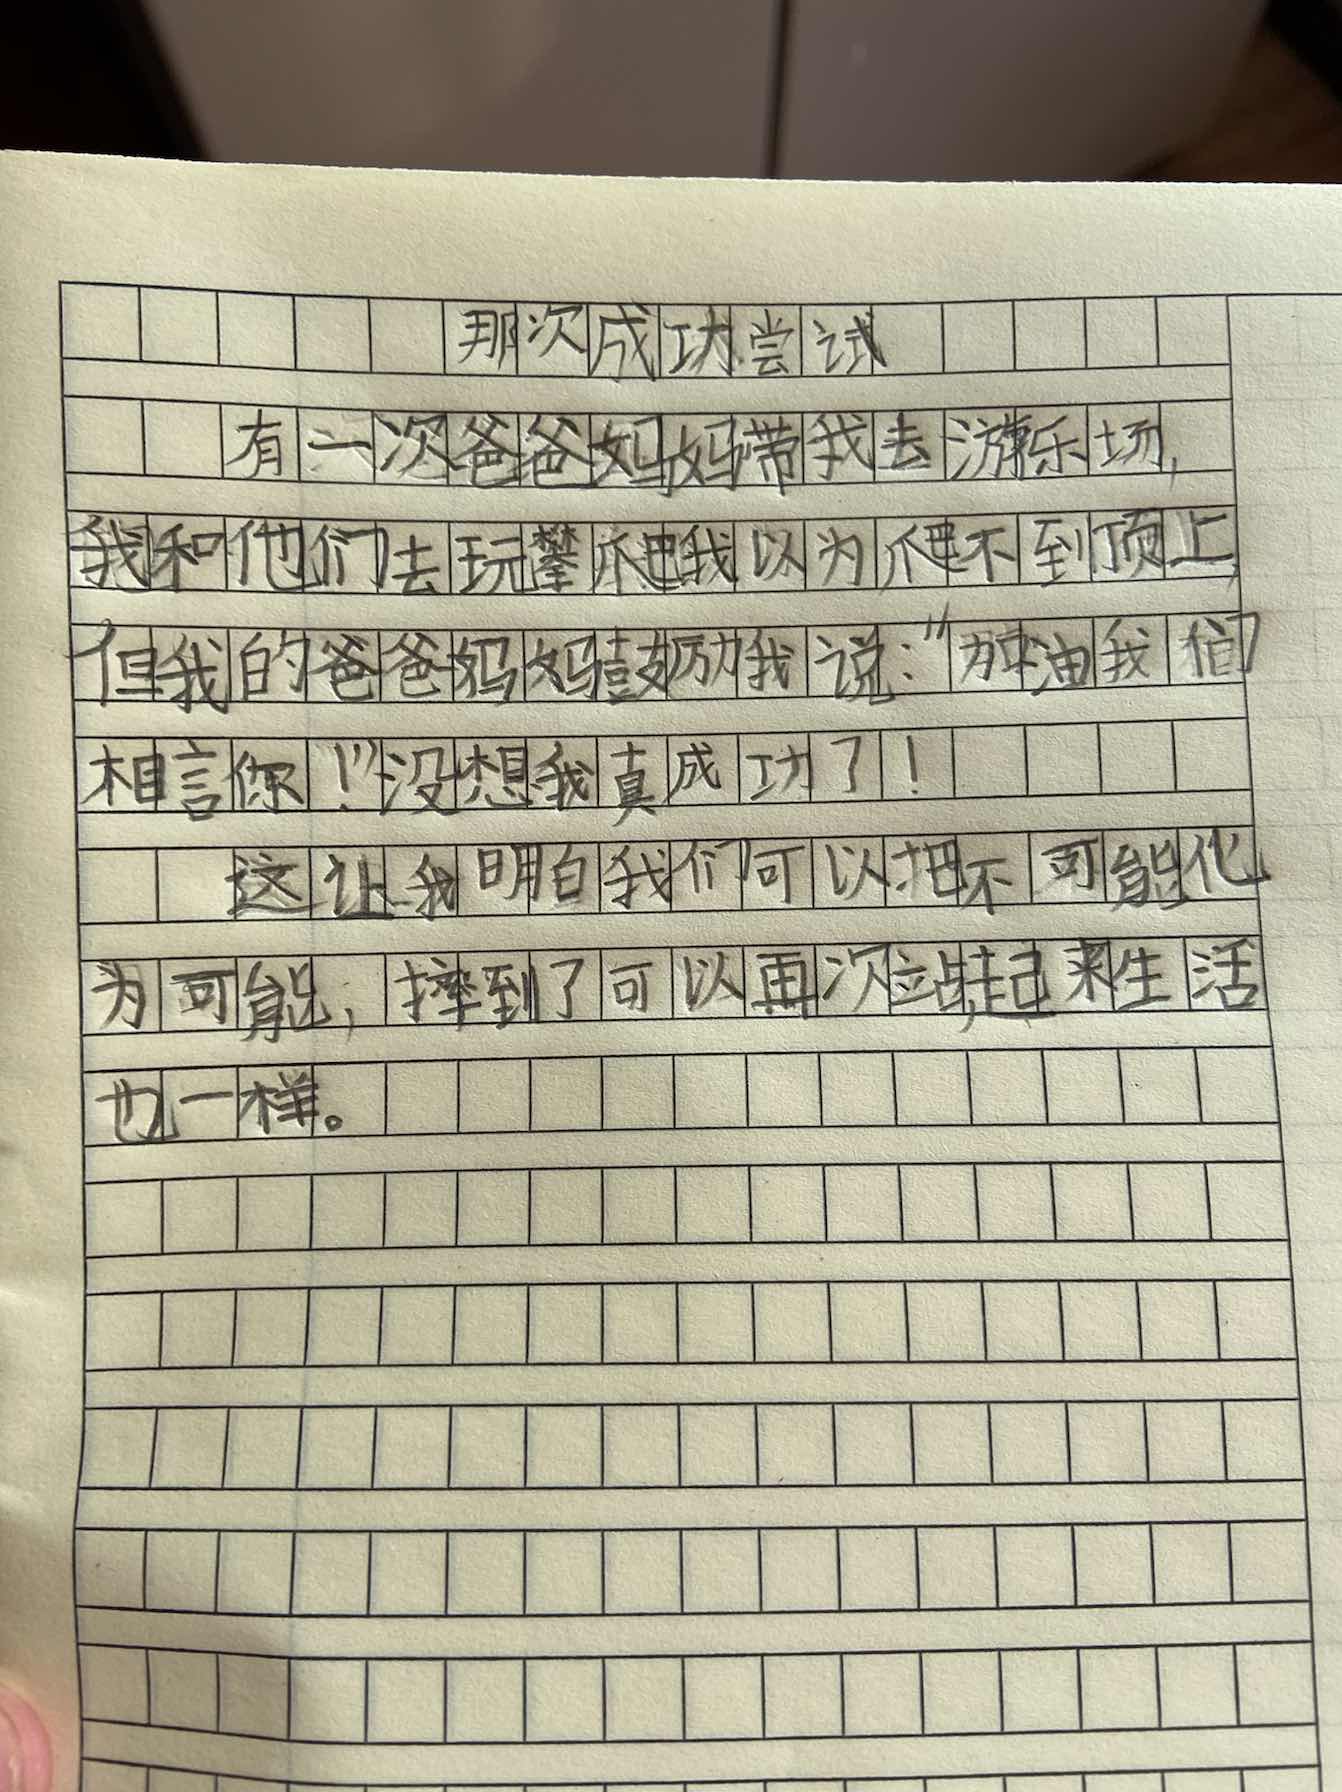 那次成功尝试
有一次爸爸妈妈带我去游乐场,
我和他们去玩攀爬我以为爬不到顶上,
但我的爸爸妈妈鼓励我说:"加油我们
相言你!"没想我真成功了!
这让我明白我们可以把不可能化
为可能,摔到了可以再次站起来生活
也一样。